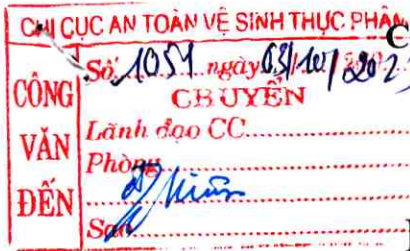 CHI CỤC AN TOÀN VỆ SINH THỰC PHẨM
CÔNG VĂN ĐẾN
Số: 1051 ngày 03/10/2023
CHUYỂN
Lãnh đạo CC
Phòng
Sao